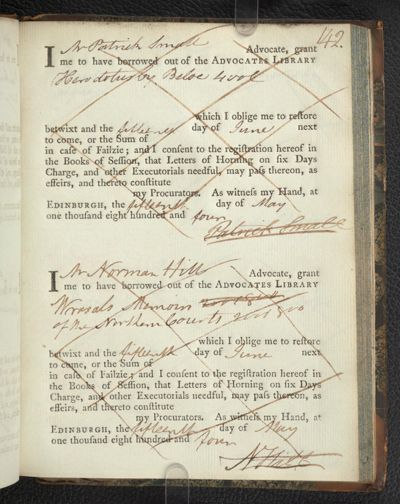 42.
I Mr Patrick Small Advocate, grant
me to have borrowed out of the ADVOCATES LIBRARY
Herodotus by Beloe 4 vol
which I oblige me to reſtore
betwixt and the fifteenth day of June next
to come, or the Sum of
in caſe of Failzie; and I conſent to the regiſtration hereof in
the Books of Seſſion, that Letters of Horning on ſix Days
Charge, and other Executorials needful, may paſs thereon, as
effeirs, and thereto conſtitute
my Procurators. As witneſs my Hand, at
EDINBURGH, the fifteenth day of May
one thouſand eight hundred and four
Patrick Small
I Mr Norman Hill Advocate, grant
me to have borrowed out of the ADVOCATES LIBRARY
Wraxals Memoirs
of the Northern Courts 2 vol 8vo
which I oblige me to reſtore
betwixt and the fifteenth day of June next
to come, or the Sum of
in caſe of Failzie; and I conſent to the regiſtration hereof in
the Books of Seſſion, that Letters of Horning on ſix Days
Charge, and other Executorials needful, may paſs thereon, as
effeirs, and thereto conſtitute
my Procurators. As witneſs my Hand, at
EDINBURGH, the fifteenth day of May
one thouſand eight hundred and four
N Hill